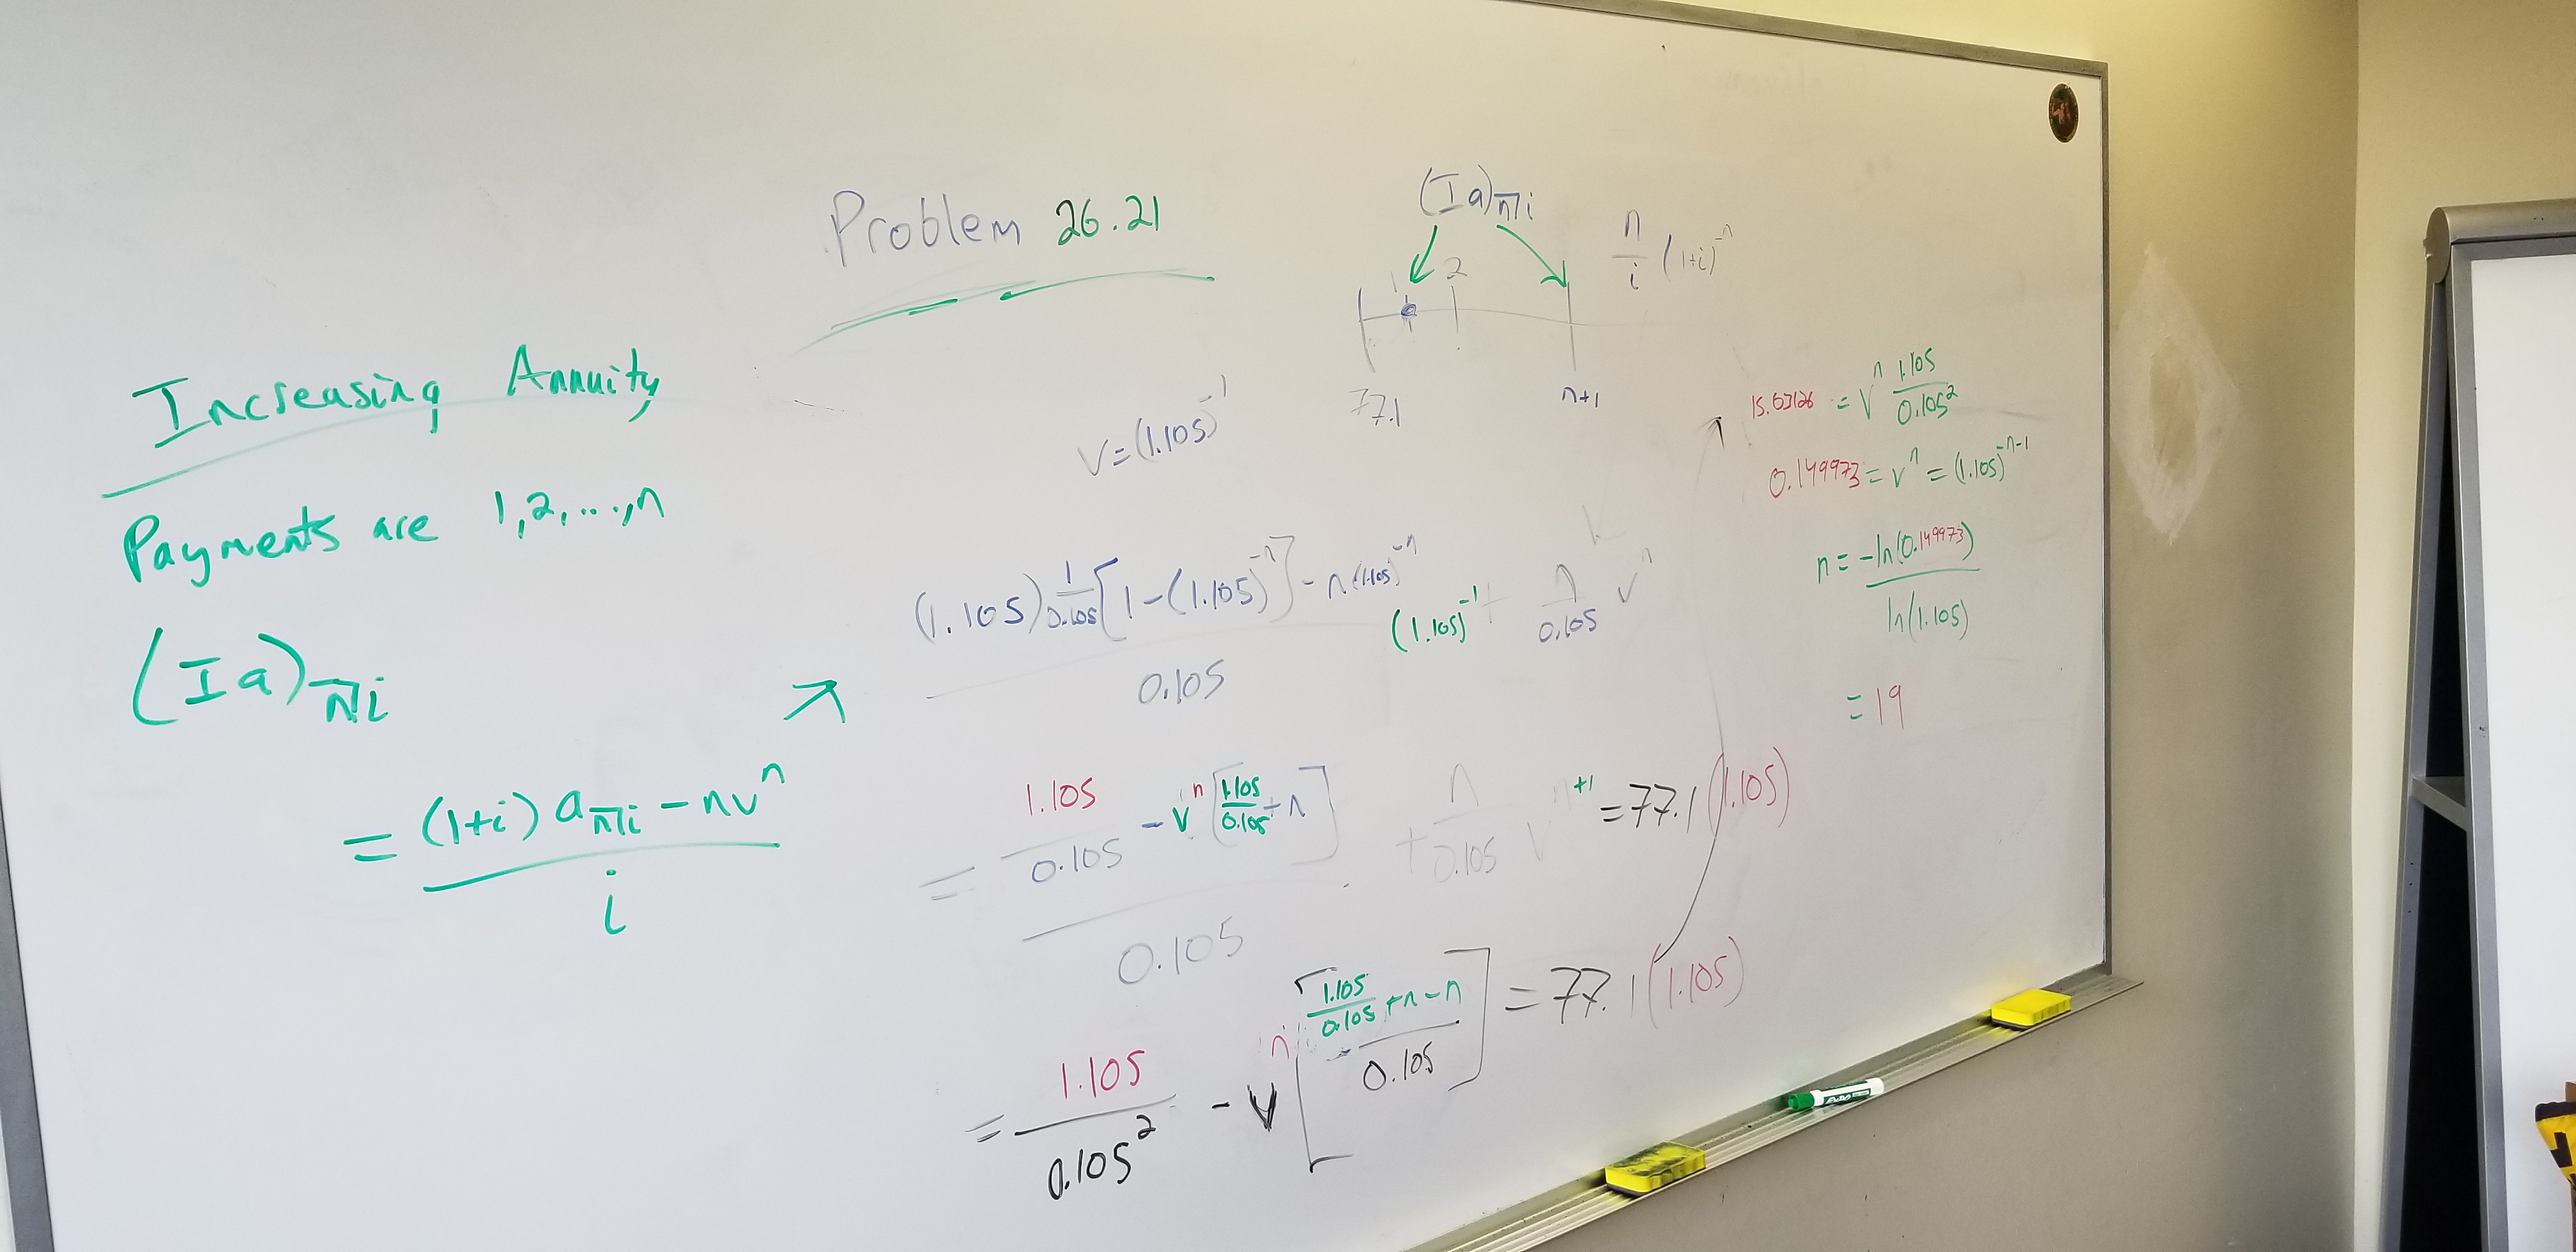 Problem 26.21
Increasing Annuity
Payments are 1,2,...,n
(Ia)n̅|i
= ((1+i) an̅|i - nv^n) / i
(Ia)n̅|i
n/i (1+i)^-n
1 2
77.1 n+1
v = (1.105)^-1
((1.105) 1/0.105 [1-(1.105)^-n] - n(1.105)^-n) / 0.105 (1.105)^-1 + n/0.105 v^n
= (1.105/0.105 - v^n [1.105/0.105 + n]) / 0.105 + n/0.105 v^n+1 = 77.1(1.105)
= 1.105/0.105^2 - v^n [(1.105/0.105 + n - n) / 0.105] = 77.1(1.105)
15.03126 = v^n 1.105/0.105^2
0.149973 = v^n = (1.105)^-n-1
n = -ln(0.149973) / ln(1.105)
= 19